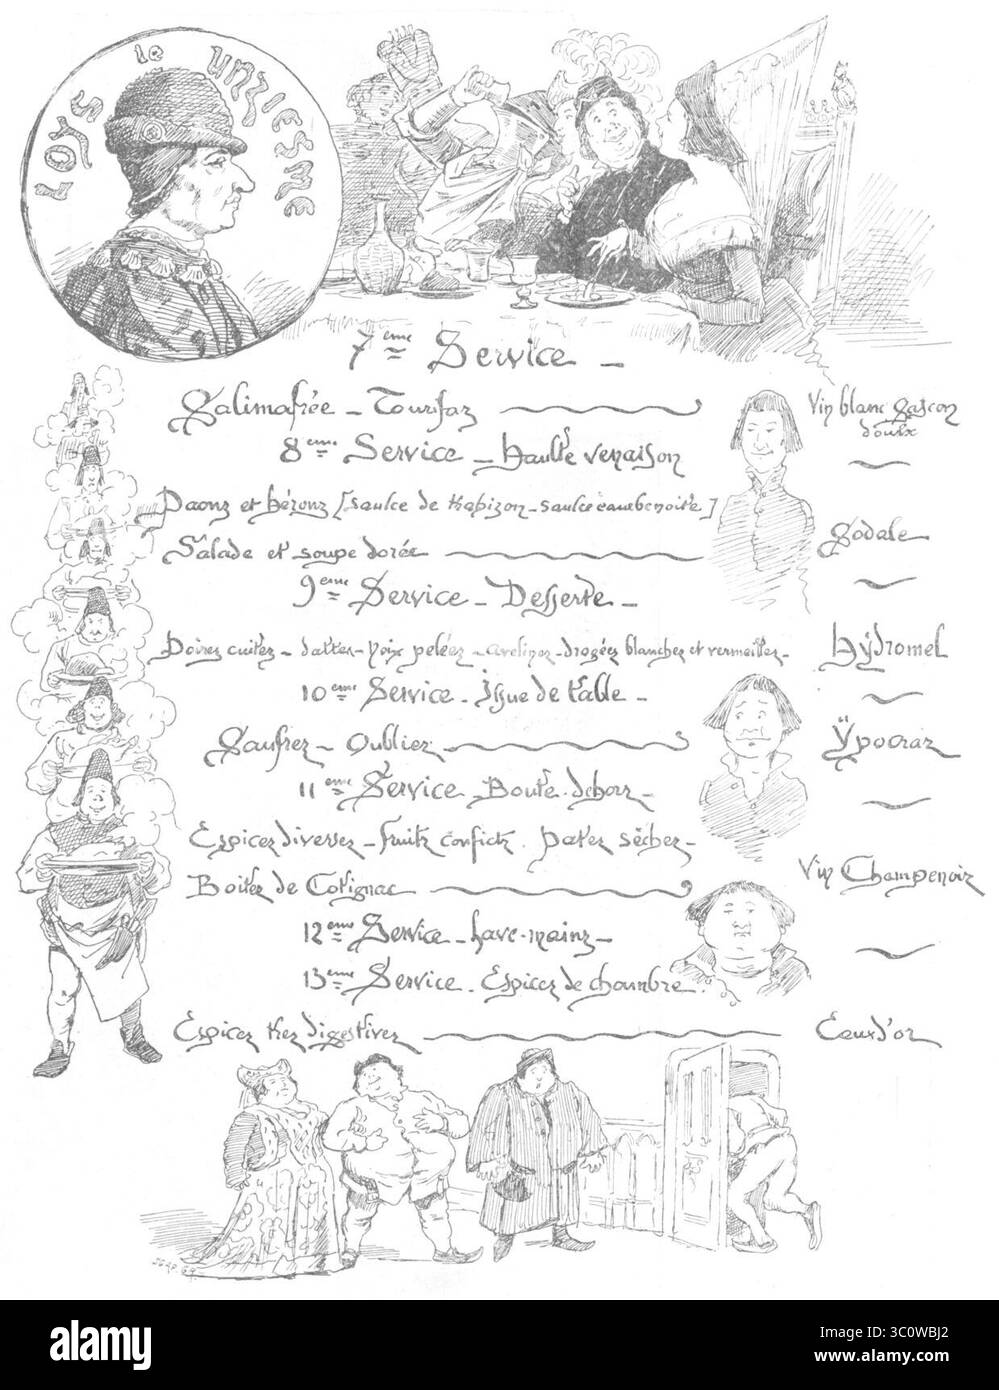 LOYS le UNZIESME
7eme Service -
Galimafrée - Tourifaz
Vin blanc Gascon
doulx
8eme Service - Haulte venaison
Paonz et héronz [saulce de trapizon - saulce eaubenoite]
Godale
Salade et soupe dorée
9eme Service - Desserte -
Poirez cuitez - dattez - Noix peléez - avelinez - drogéez blanchez et vermeillez -
Hydromel
10eme Service - Issue de table -
Gaufrez - Oubliez
Ypocraz
11eme Service - Boute-dehorz -
Espicez diversez - fruitz confictz. patez sêchez -
Boitez de Cotignac
Vin Champenoiz
12eme Service - lave-mainz -
13eme Service. Espicez de chambre.
Espicez trez digestivez
Eaux d'or
alamy
Image ID: 3C0WBJ2
www.alamy.com